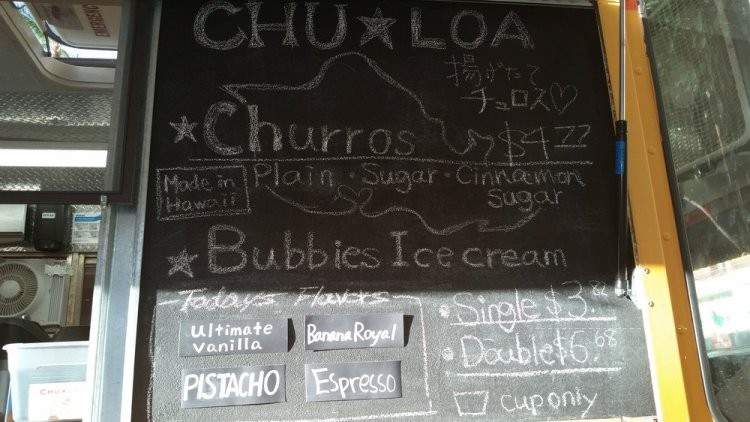 CHU★LOA
揚げたて
チュロス♡
★Churros $4.77
Made in
Hawaii
Plain・Sugar・Cinnamon
Sugar
★Bubbies Ice cream
Todays Flavors
Ultimate
Vanilla
Banana Royal
PISTACHO
Espresso
・Single $3.82
・Double $6.68
cup only